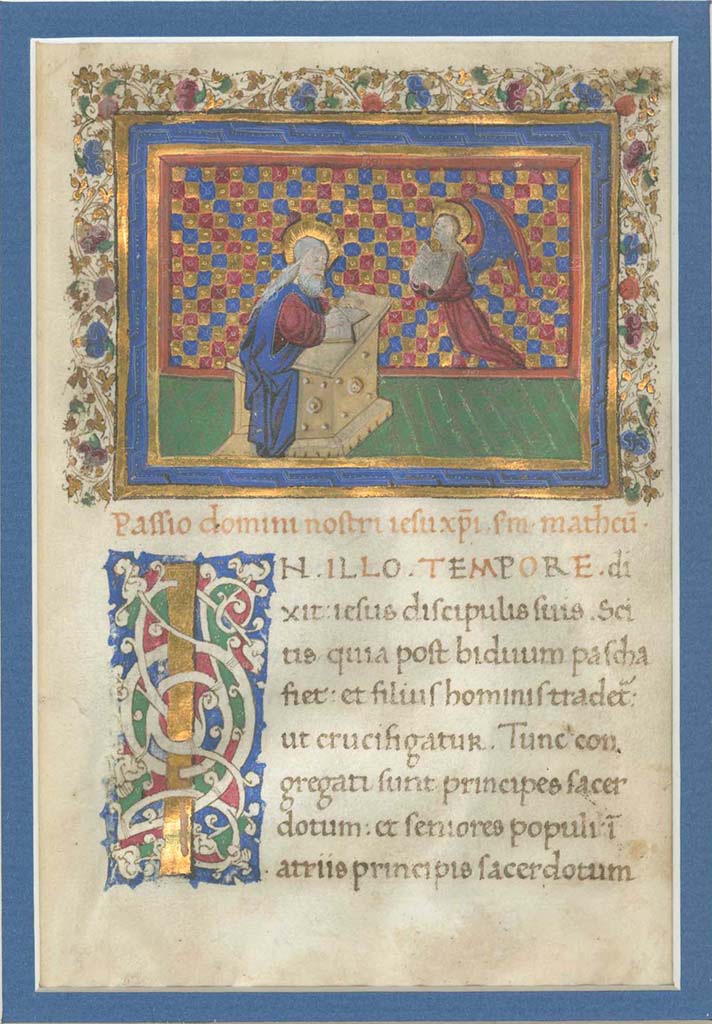 Passio domini nostri iesu xp̄i. sm̄. matheū.
IN. ILLO. TEMPORE. di
xit: iesus discipulis suis. Sci
tis quia post biduum pascha
fiet: et filius hominis tradet̄:
ut crucifigatur. Tunc con
gregati sunt principes sacer
dotum: et seniores populi: ī
atriis principis sacerdotum